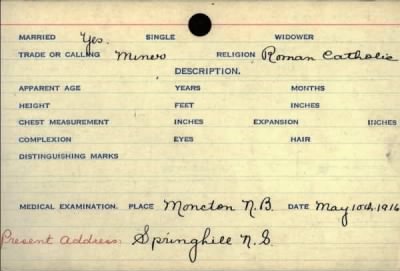 MARRIED Yes. SINGLE WIDOWER
TRADE OR CALLING Miner RELIGION Roman Catholic
DESCRIPTION.
APPARENT AGE YEARS MONTHS
HEIGHT FEET INCHES
CHEST MEASUREMENT INCHES EXPANSION INCHES
COMPLEXION EYES HAIR
DISTINGUISHING MARKS
MEDICAL EXAMINATION. PLACE Moncton N.B. DATE May 10th, 1916
Present Address: Springhill N.S.